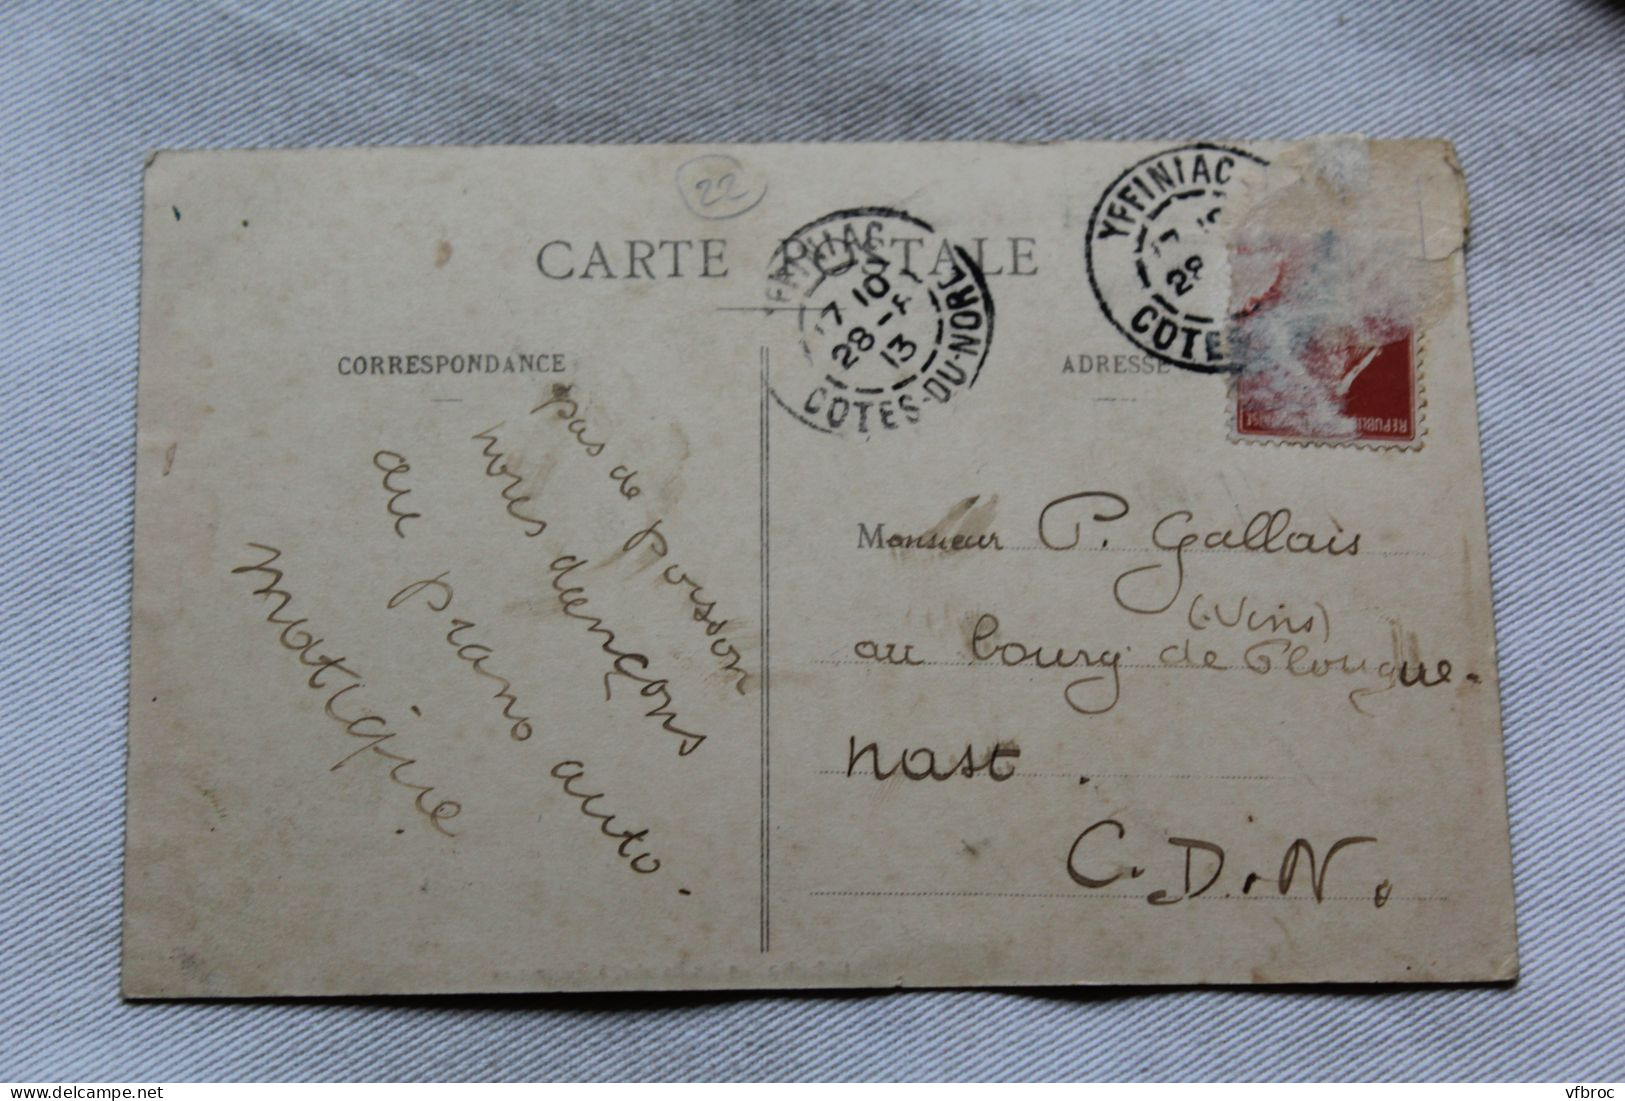 22
CARTE POSTALE
YFFINIAC
17 10
28 -
13
COTES-DU-NORD
YFFINIAC
28
COTES
REPUBLIQUE FRANÇAISE
CORRESPONDANCE
ADRESSE
pas de poisson
nous dançons
au piano auto-
matique
Monsieur P. Gallais
(Vins)
au bourg de Plougue-
nast.
C.D.N.
vfbroc